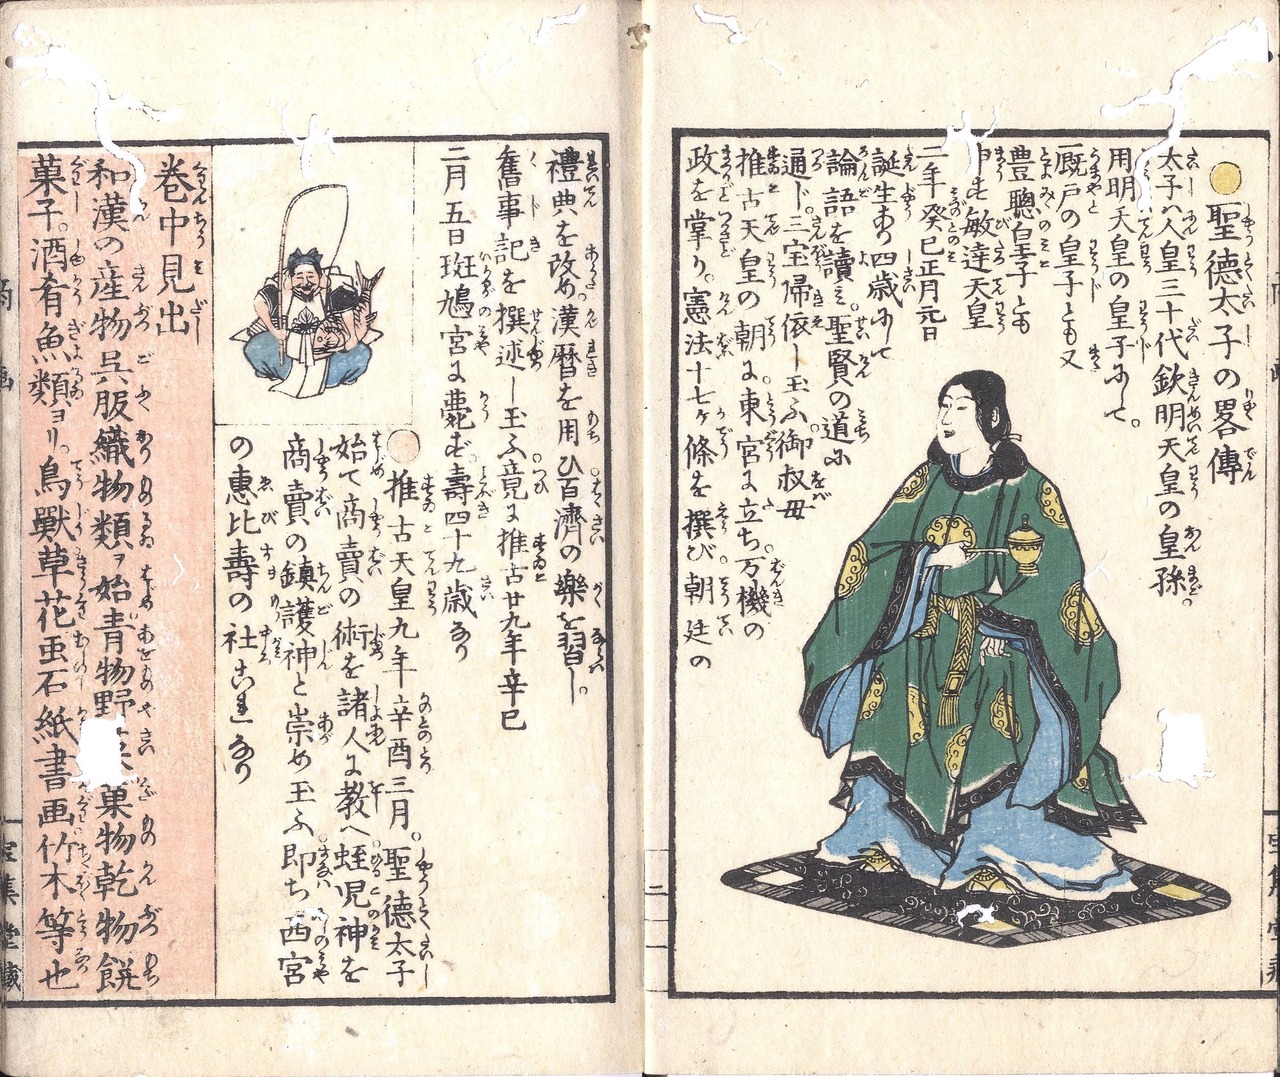 聖徳太子の畧傳
太子ハ人皇三十代欽明天皇の皇孫。
用明天皇の皇子にして。
厩戸の皇子とも又
豊聰皇子とも
申す敏達天皇
二年癸巳正月元日
誕生あり四歳にて
論語を讀ミ。聖賢の道に
通じ。三宝帰依し玉ふ。御叔母
推古天皇の朝に東宮に立ち。万機の
政を掌り。憲法十七ヶ條を撰び朝廷の
禮典を改め。漢暦を用ひ百濟の樂を習し。
舊事記を撰述し玉ふ。竟に推古廿九年辛巳
二月五日斑鳩宮に薨ず。壽四十九歳なり
推古天皇九年辛酉三月。聖德太子
始て商賣の術を諸人に教へ。蛭児神を
商賣の鎮護神と崇め玉ふ。即ち西宮
の恵比壽の社これなり
巻中見出
和漢の産物呉服織物類ヲ始青物野菜菓物乾物餅
菓子。酒肴魚類ヨリ。鳥獸草花虫石紙書画竹木等也
二
宝集堂蔵